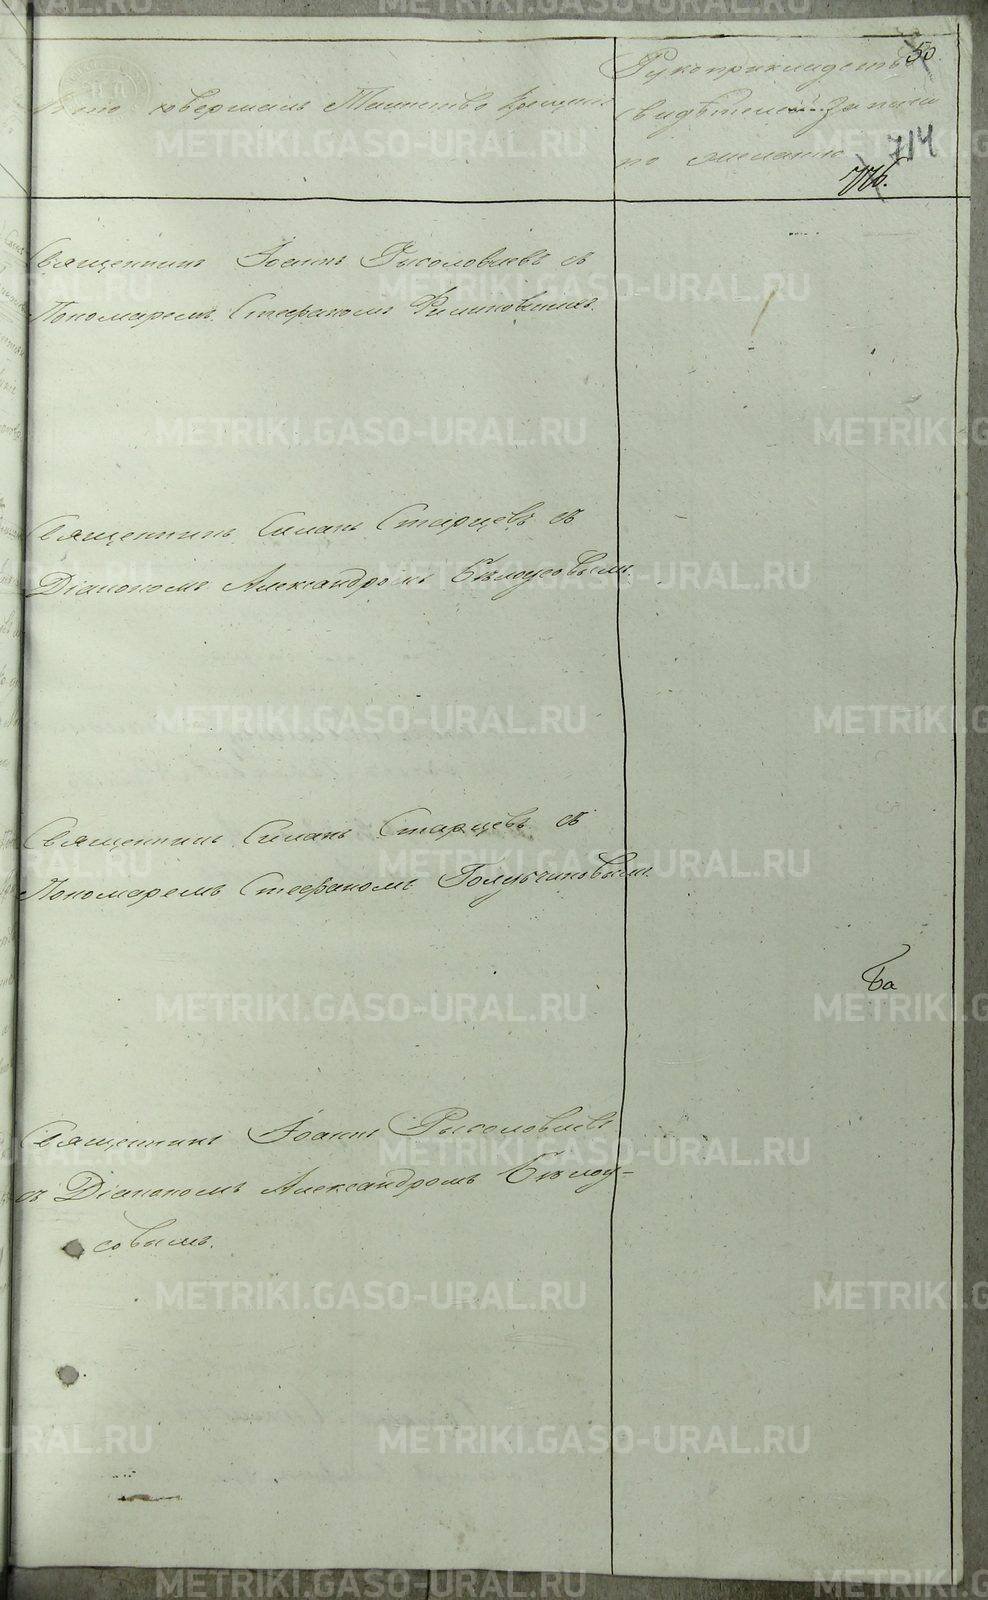 50
Кто совершалъ Таинство Крещенія
Рукоприкладство
свидѣтелей записи
по желанію
714
Священникъ Іоаннъ съ
Пономаремъ Стефаномъ
Священникъ Силанъ Старцевъ съ
Діакономъ Александромъ Бѣлоусовымъ.
Священникъ Силанъ Старцевъ съ
Пономаремъ Стефаномъ Голубчиковымъ.
Ба
Священникъ Іоаннъ
съ Діакономъ Александромъ Бѣлоу-
совымъ.
METRIKI.GASO-URAL.RU